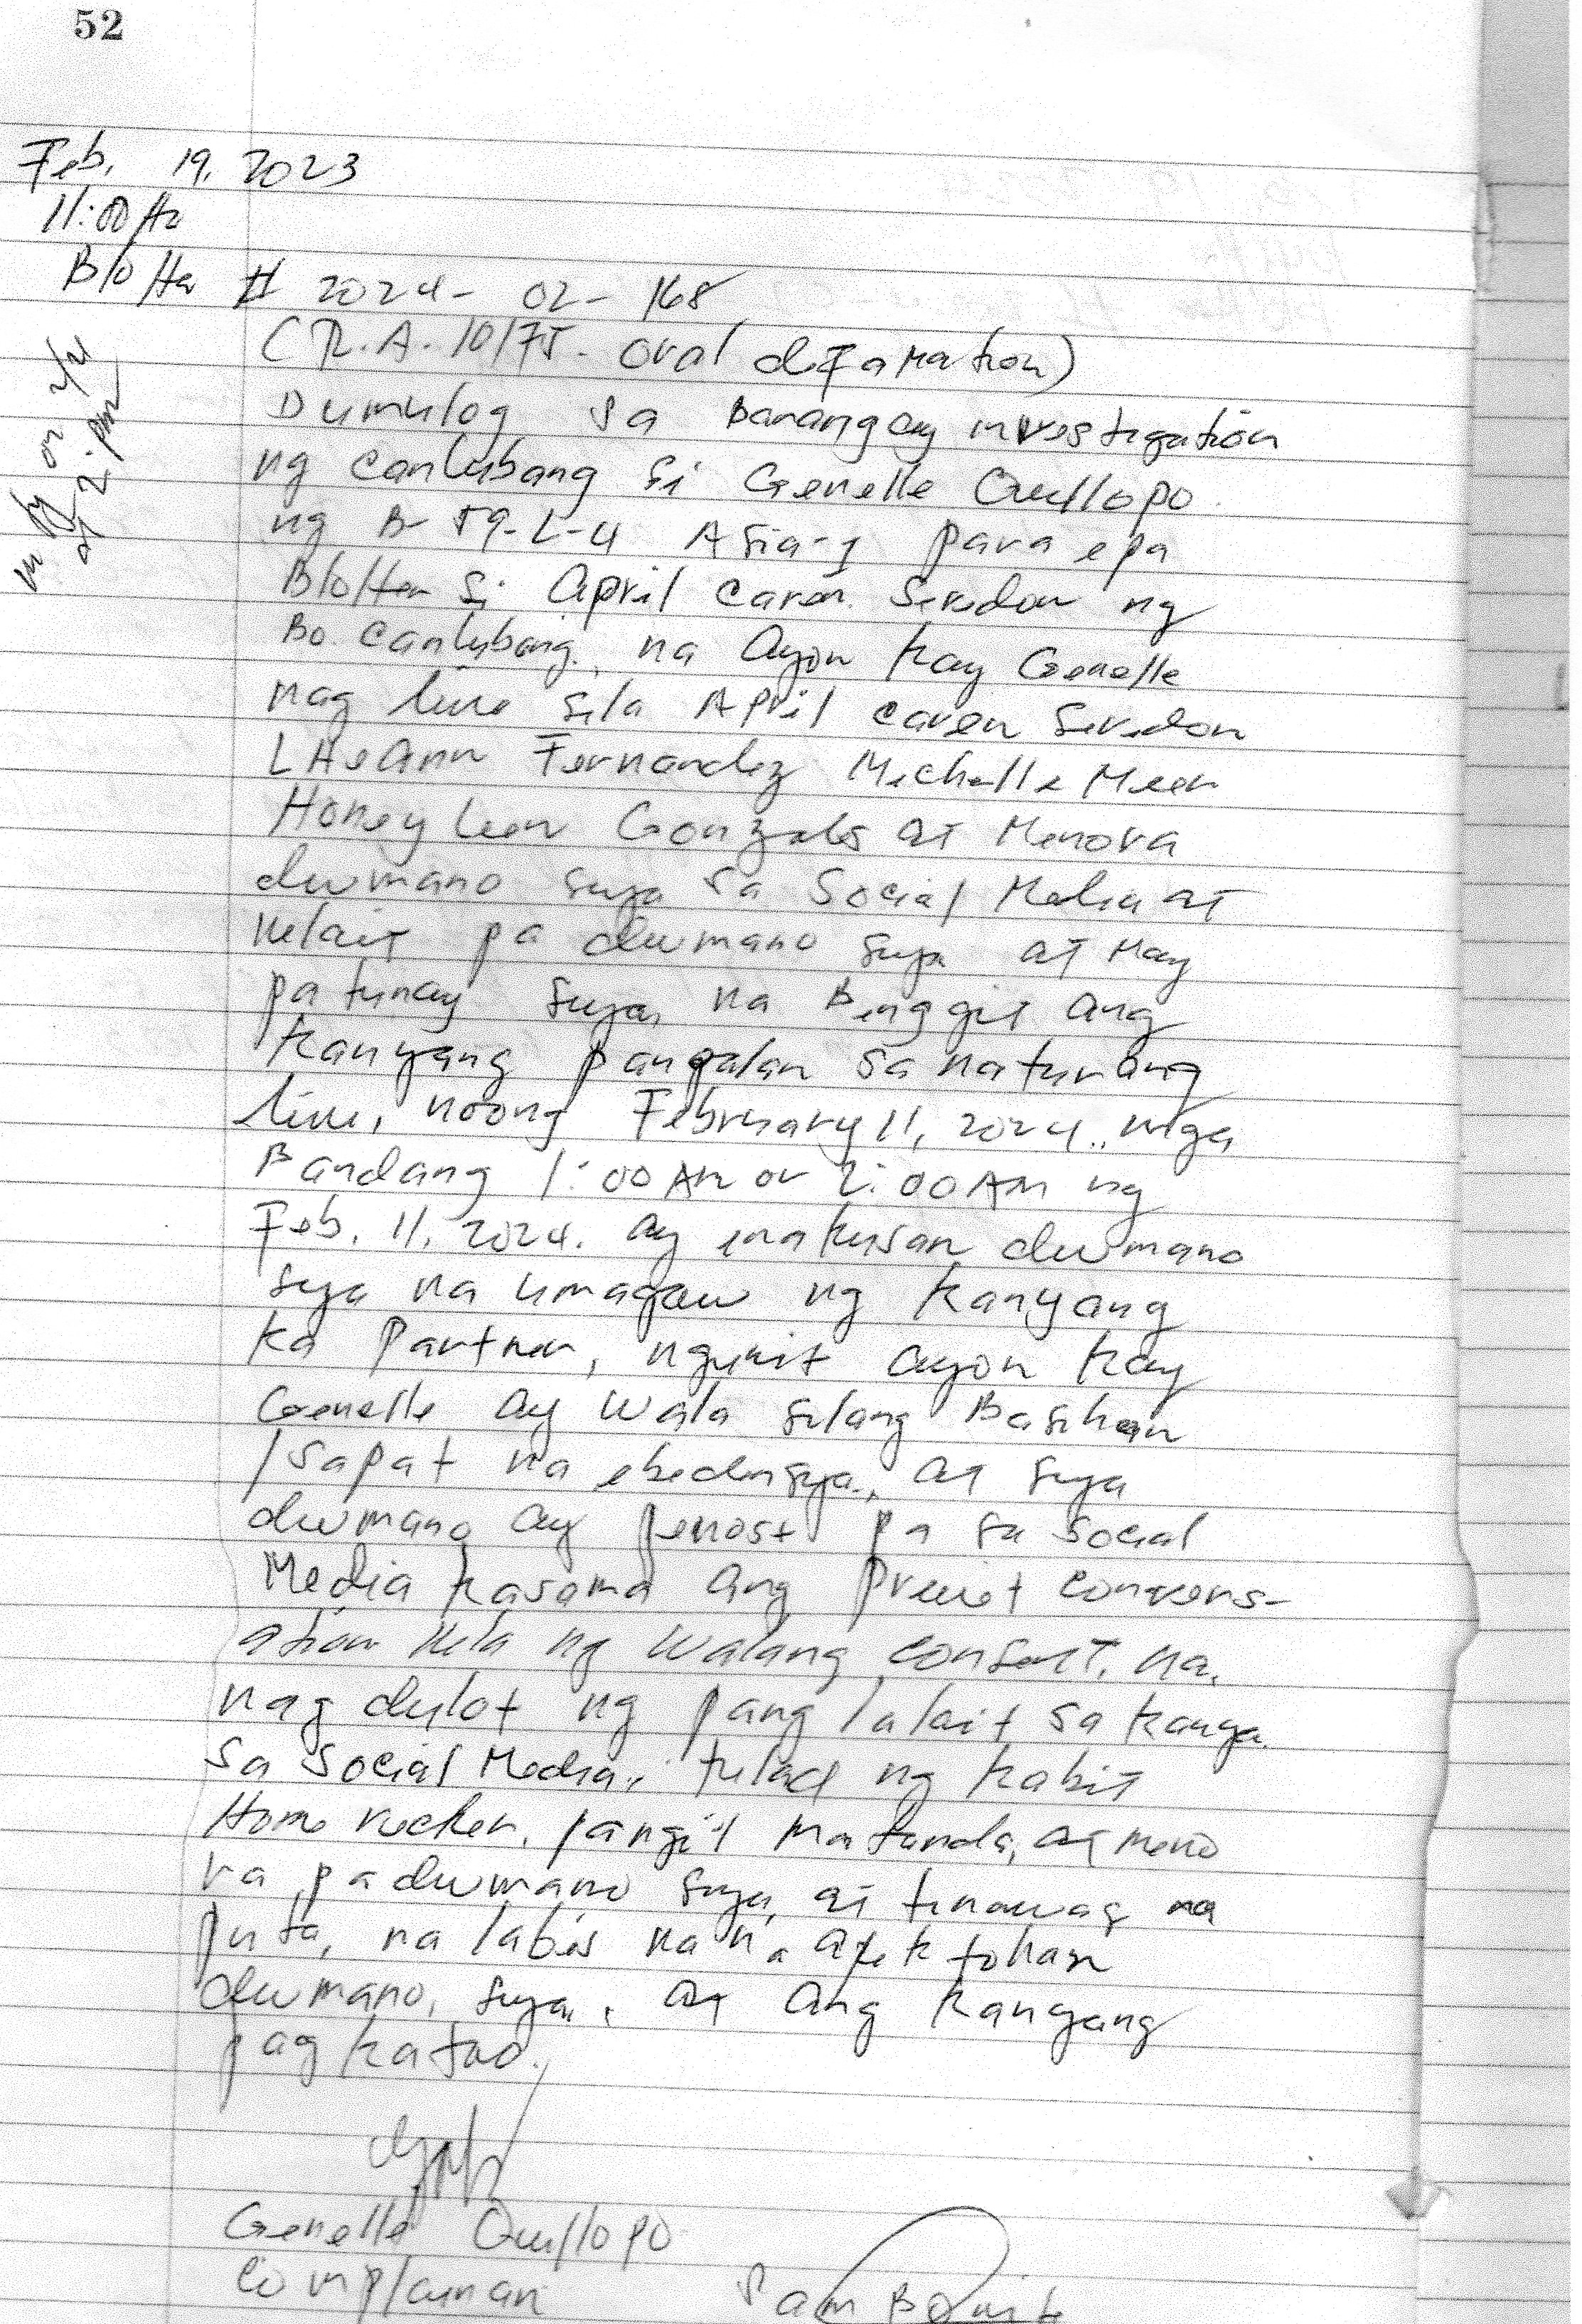 52
Feb. 19, 2023
11:00 Am
Blotter # 2024 - 02 - 168
(R.A. 10175 - oral defamation)
Dumulog sa Barangay investigation
ng canlubang si Genelle Quillopo
ng B- 59-L-4 Asia-1 para epa
Blotter si April caren Seredon ng
Bo. canlubang, na Ayon kay Genelle
nag live sila April caren Seredon
LHeAnn Fernandez Michelle Meer
Honeyleen Gonzales at Menora
duwmano sya sa Social Media at
nelait pa duwmano sya at May
patunay sya, na Benggit ang
kanyang pangalan sa naturang
live, noong February 11, 2024., mga
Bandang 1:00 AM or 2:00 AM ng
Feb. 11, 2024. ay inakusan duwmano
sya na umagaw ng kanyang
ka Partner, ngunit ayon kay
Genelle ay wala silang Basihan
/sapat na ebedensya., at sya
duwmano ay penost pa sa social
Media kasama ang privet convers-
ation nela ng walang consent, na.
nag dulot ng pang lalait sa kanya.
sa social Media., tulad ng kabit
Home recker, pangit matanda, at meno
ra pa duwmano sya, at tenawag na
puta, na labis na na apektohan
duwmano, sya., at ang kanyang
pag katao.
Genelle Quillopo
Complainan